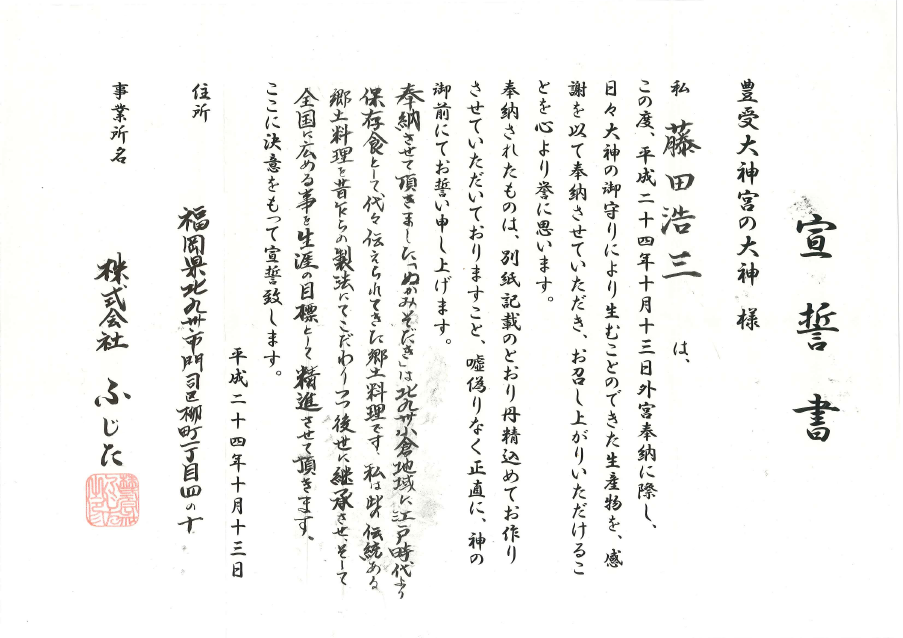 宣誓書
豊受大神宮の大神 様
私 藤田浩三 は、
この度、平成二十四年十月十三日外宮奉納に際し、
日々大神の御守りにより生むことのできた生産物を、感
謝を以て奉納させていただき、お召し上がりいただけるこ
とを心より誉に思います。
奉納されたものは、別紙記載のとおり丹精込めてお作り
させていただいておりますこと、嘘偽りなく正直に、神の
御前にてお誓い申し上げます。
奉納させて頂きました「ぬかみそだき」は北九州小倉地域に江戸時代より
保存食として代々伝えられてきた郷土料理です。私は此の伝統ある
郷土料理を昔乍らの製法にてこだわりつつ後世に継承させ、そして
全国に広める事を生涯の目標として精進させて頂きます、
ここに決意をもって宣誓致します。
平成二十四年十月十三日
住所 福岡県北九州市門司区柳町一丁目四の十
事業所名 株式会社 ふじた